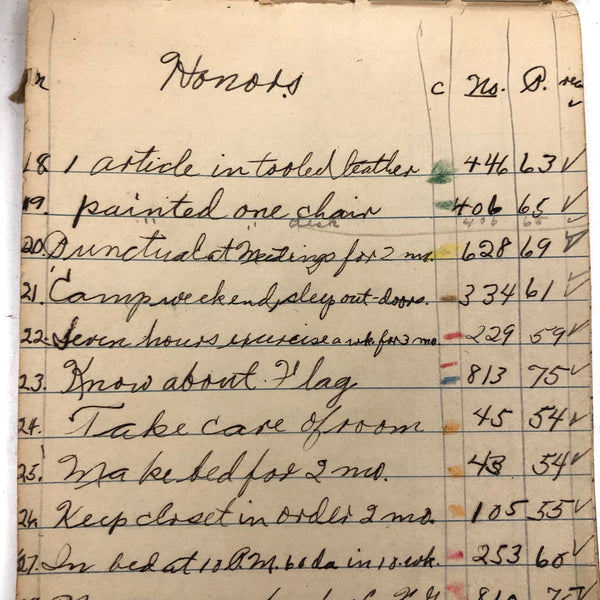 n Honors C No. P. rec
18. 1 article in tooled leather 446 63 ✓
19. painted one chair 406 65 ✓
" " desk 406 65 ✓
20. Punctual at Meetings for 2 mo. 628 69 ✓
21. Camp week end, sleep out-doors. 334 61 ✓
22. Seven hours exercise a wk for 3 mo. 229 59 ✓
23. Know about Flag 813 75 ✓
24. Take care of room 45 54 ✓
25. Make bed for 2 mo. 43 54 ✓
26. Keep closet in order 2 mo. 105 55 ✓
27. In bed at 10 P.M. 60 da in 10 wk. 253 60 ✓